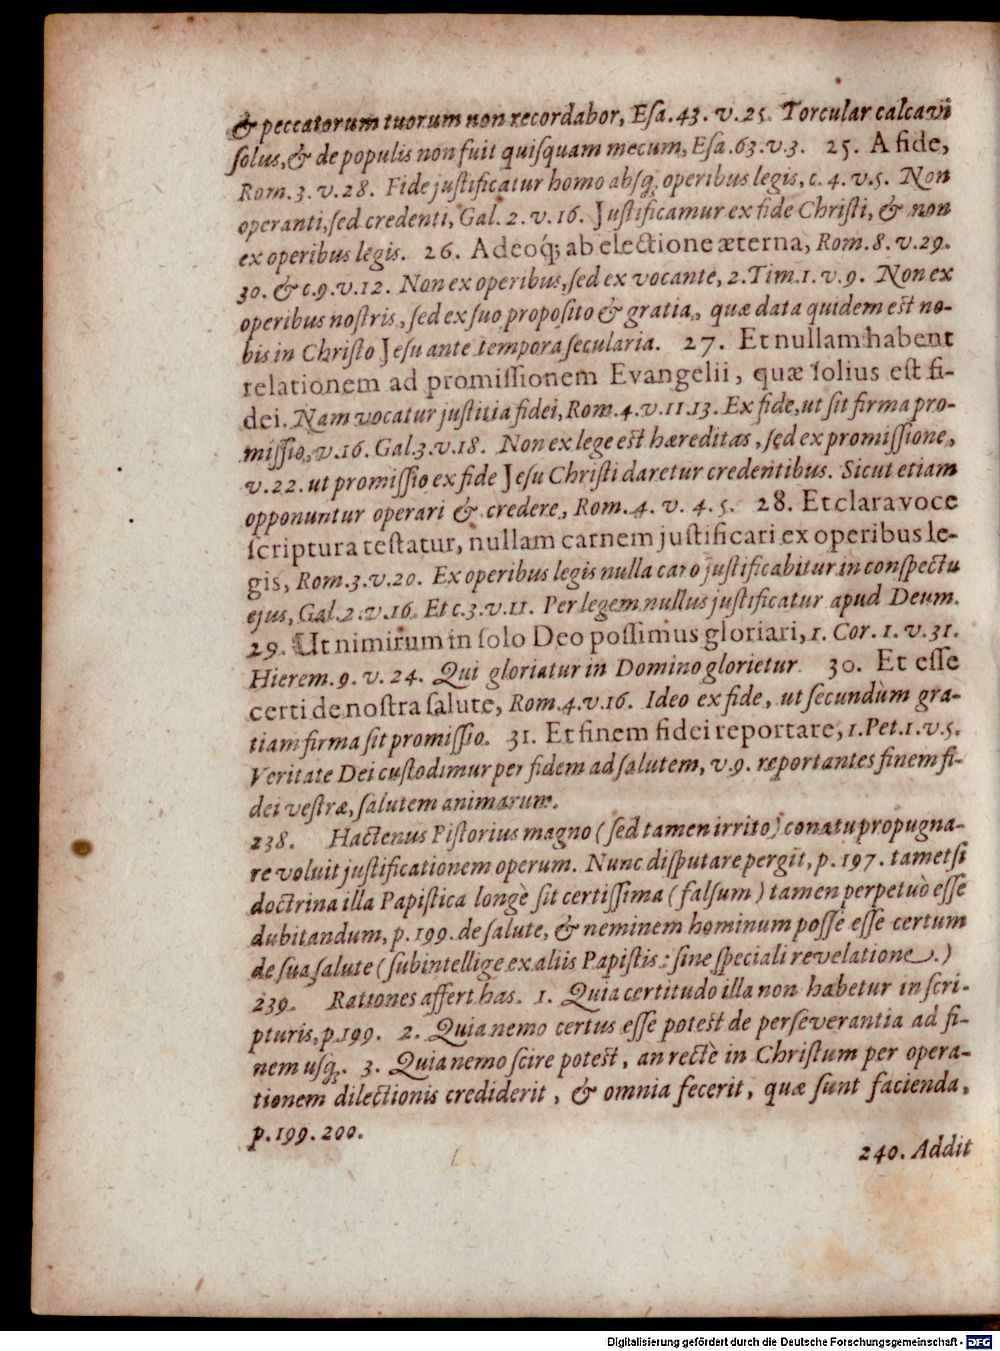 & peccatorum tuorum non recordabor, Eſa. 43. v. 25. Torcular calcavi
ſolus, & de populis non fuit quiſquam mecum, Eſa. 63. v. 3. 25. A fide,
Rom. 3. v. 28. Fide juſtificatur homo abſq; operibus legis, c. 4. v. 5. Non
operanti, ſed credenti, Gal. 2. v. 16. Juſtificamur ex fide Chriſti, & non
ex operibus legis. 26. Adeoq́; ab electione æterna, Rom. 8. v. 29.
30. & c. 9. v. 12. Non ex operibus, ſed ex vocante, 2. Tim. 1. v. 9. Non ex
operibus noſtris, ſed ex ſuo propoſito & gratia, quæ data quidem eſt no-
bis in Chriſto Jeſu ante tempora ſecularia. 27. Et nullam habent
relationem ad promiſſionem Evangelii, quæ ſolius eſt fi-
dei. Nam vocatur juſtitia fidei, Rom. 4. v. 11. 13. Ex fide, ut ſit firma pro-
miſſio, v. 16. Gal. 3. v. 18. Non ex lege eſt hæreditas, ſed ex promiſſione,
v. 22. ut promiſſio ex fide Jeſu Chriſti daretur credentibus. Sicut etiam
opponuntur operari & credere, Rom. 4. v. 4. 5. 28. Et clara voce
ſcriptura teſtatur, nullam carnem juſtificari ex operibus le-
gis, Rom. 3. v. 20. Ex operibus legis nulla caro juſtificabitur in conſpectu
ejus, Gal. 2. v. 16. Et c. 3. v. 11. Per legem nullus juſtificatur apud Deum.
29. Ut nimirum in ſolo Deo poſſimus gloriari, 1. Cor. 1. v. 31.
Hierem. 9. v. 24. Qui gloriatur in Domino glorietur. 30. Et eſſe
certi de noſtra ſalute, Rom. 4. v. 16. Ideo ex fide, ut ſecundùm gra-
tiam firma ſit promiſſio. 31. Et finem fidei reportare, 1. Pet. 1. v. 5.
Veritate Dei cuſtodimur per fidem ad ſalutem, v. 9. reportantes finem fi-
dei veſtræ, ſalutem animarum.
238. Hactenus Piſtorius magno (ſed tamen irrito) conatu propugna-
re voluit juſtificationem operum. Nunc diſputare pergit, p. 197. tametſi
doctrina illa Papiſtica longè ſit certiſſima (falſum) tamen perpetuò eſſe
dubitandum, p. 199. de ſalute, & neminem hominum poſſe eſſe certum
de ſua ſalute (ſubintellige ex aliis Papiſtis: ſine ſpeciali revelatione.)
239. Rationes affert has. 1. Quia certitudo illa non habetur in ſcri-
pturis, p. 199. 2. Quia nemo certus eſſe poteſt de perſeverantia ad fi-
nem uſq;. 3. Quia nemo ſcire poteſt, an rectè in Chriſtum per opera-
tionem dilectionis crediderit, & omnia fecerit, quæ ſunt facienda,
p. 199. 200.
240. Addit
Digitalisierung gefördert durch die Deutsche Forschungsgemeinschaft - DFG